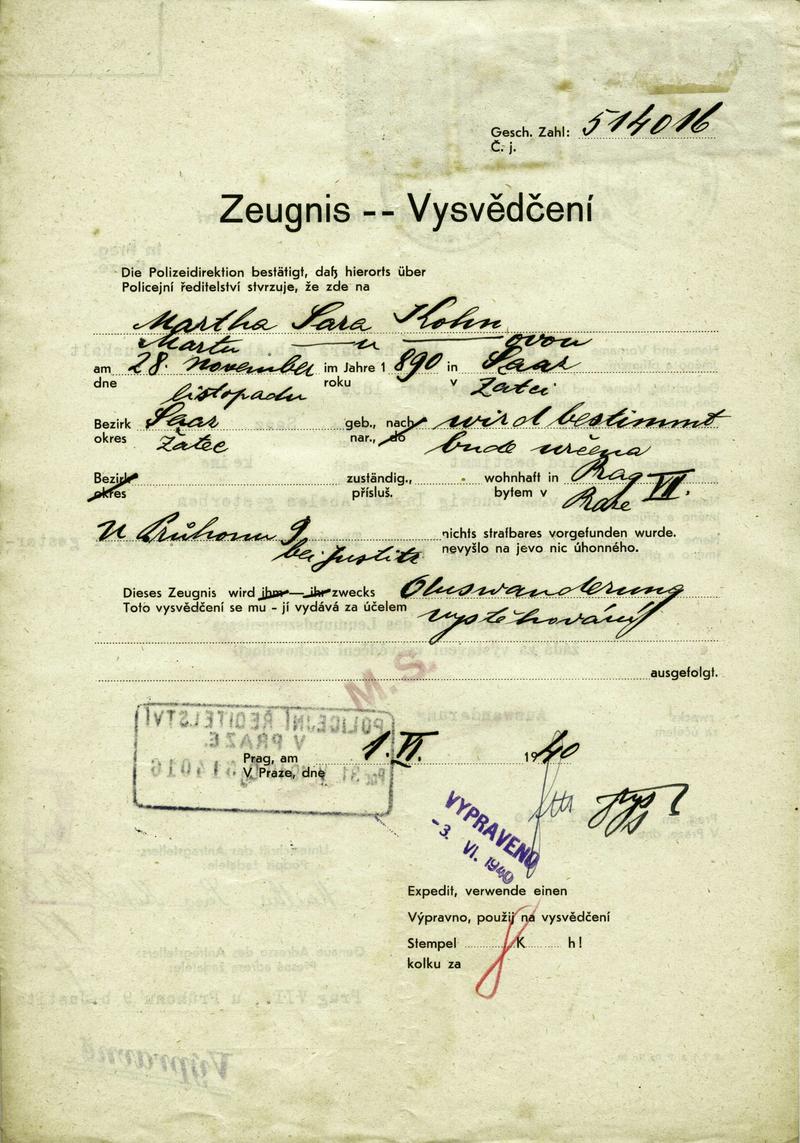 Gesch. Zahl: 514016
Č. j.
Zeugnis -- Vysvědčení
Die Polizeidirektion bestätigt, daß hierorts über
Policejní ředitelství stvrzuje, že zde na
Martha Sara Kohn
Martu — u — ovou
am 28. November im Jahre 1 890 in Saaz
dne listopadu roku v Žatci
Bezirk Saaz geb., nach wird bestimmt
okres Žatec nar., do bude určena
Bezirk zuständig., wohnhaft in Prag VII.
okres přísluš. bytem v Praze
U Průhonu 9 nichts strafbares vorgefunden wurde.
bei Justitz nevyšlo na jevo nic úhonného.
Dieses Zeugnis wird ihm — ihr zwecks Auswanderung
Toto vysvědčení se mu - jí vydává za účelem vystěhování
ausgefolgt.
M.S.
POLICEJNÍ ŘEDITELSTVÍ
V PRAZE.
514016
Prag, am 1. VI. 1940
V Praze, dne
VYPRAVENO
-3. VI. 1940
Expedit, verwende einen
Výpravno, použij na vysvědčení
Stempel K h!
kolku za 8